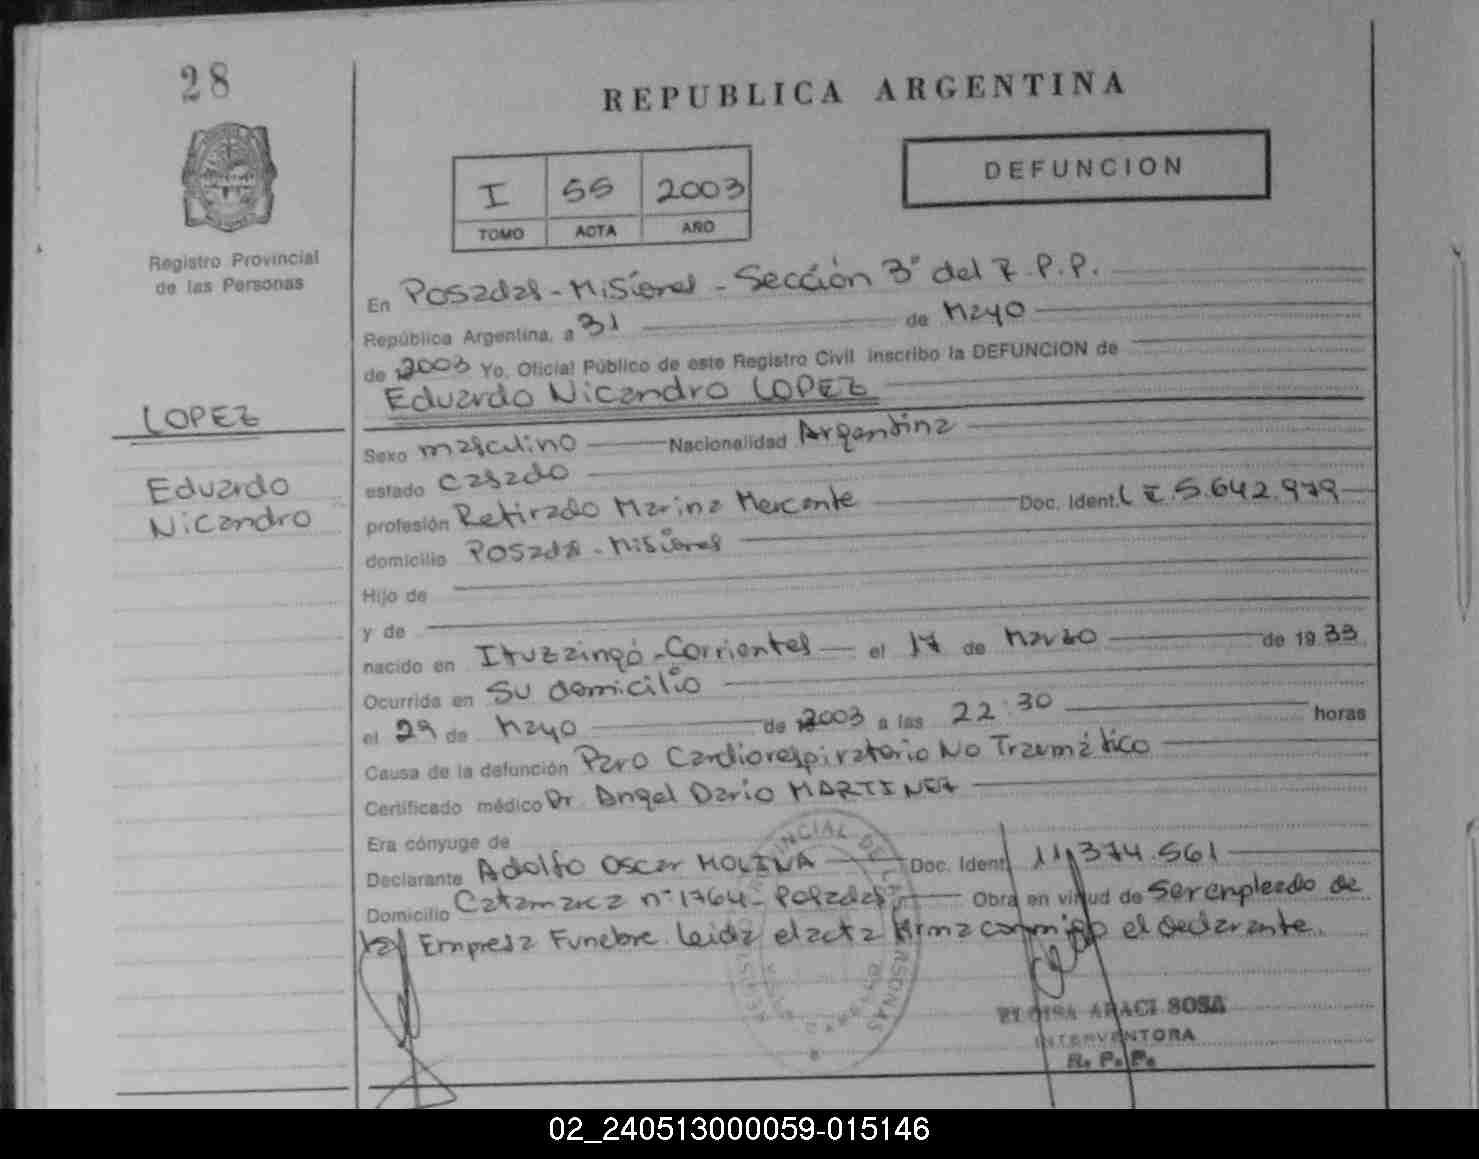 28
REPUBLICA ARGENTINA
DEFUNCION
I 55 2003
TOMO ACTA AÑO
Registro Provincial
de las Personas
En Posadas - Misiones - Sección 3° del R.P.P.
República Argentina, a 31 de Mayo
de 2003 Yo, Oficial Público de este Registro Civil inscribo la DEFUNCION de
Eduardo Nicandro LOPEZ
LOPEZ
Eduardo
Nicandro
Sexo masculino Nacionalidad Argentina
estado casado
profesión Retirado Marina Mercante Doc. Ident. L E 5.642.979
domicilio Posadas - Misiones
Hijo de
y de
nacido en Ituzzingó - Corrientes el 17 de Marzo de 1933
Ocurrida en Su domicilio
el 29 de Mayo de 2003 a las 22:30 horas
Causa de la defunción Paro Cardiorespiratorio No Traumático
Certificado médico Dr. Angel Dario MARTINEZ
Era cónyuge de
Declarante Adolfo Oscar MOLINA Doc. Ident 11,374.561
Domicilio Catamarca n° 1764 - Posadas Obra en virtud de ser empleado de
la Empresa Funebre. Leida el acta firma conmigo el declarante.
ELOISA ARACI SOSA
INTERVENTORA
R. P. P.
02_240513000059-015146